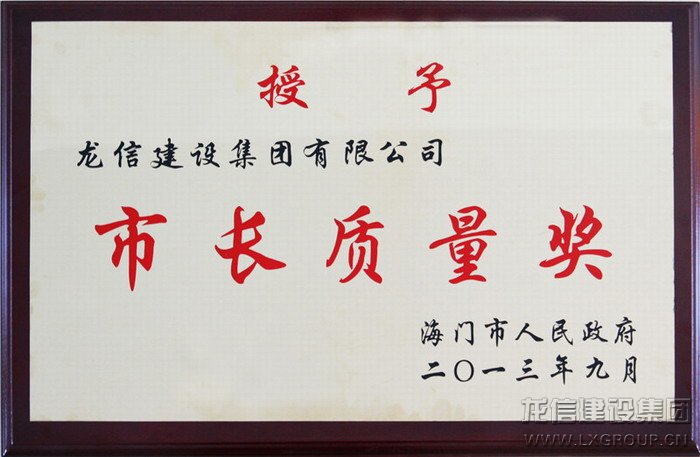 授予
龙信建设集团有限公司
市长质量奖
海门市人民政府
二〇一三年九月
龙信建设集团
WWW.LXGROUP.CN